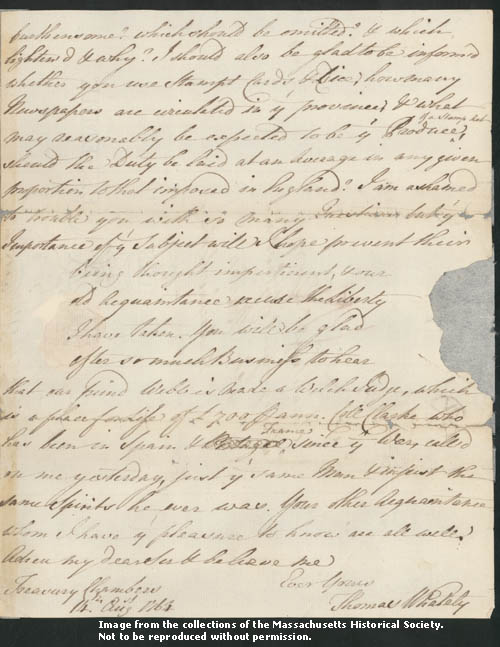 burthensome? which should be omitted? & which
lighten'd & why? I should also be glad to be inform'd
whether you use Stampt Cards & Dice, how many
Newspapers are circulated in yr province, & what
may reasonably be expected to be ye Produce,
of a Stamp
should the Duty be laid at an Average in any given
proportion to that imposed in England? I am ashamed
to trouble you with so many Questions but ye
Importance of ye Subject will I hope prevent their
being thought impertinent, & our
old Acquaintance excuse the liberty
I have taken. You will be glad
after so much Business to hear
that our friend Webb is made a Welch Judge, which
is a place for Life of £700 p ann. Coll. Clarke who
has been in Spain & France since ye War, call'd
on me yesterday, just ye same Man & in just the
same spirits he ever was. Your other Acquaintance
whom I have ye pleasure to know are all well.
Adieu my dear Sir & believe me
Ever Yours
Treasury Chambers
14th Augt 1764
Thomas Whately
Image from the collections of the Massachusetts Historical Society.
Not to be reproduced without permission.